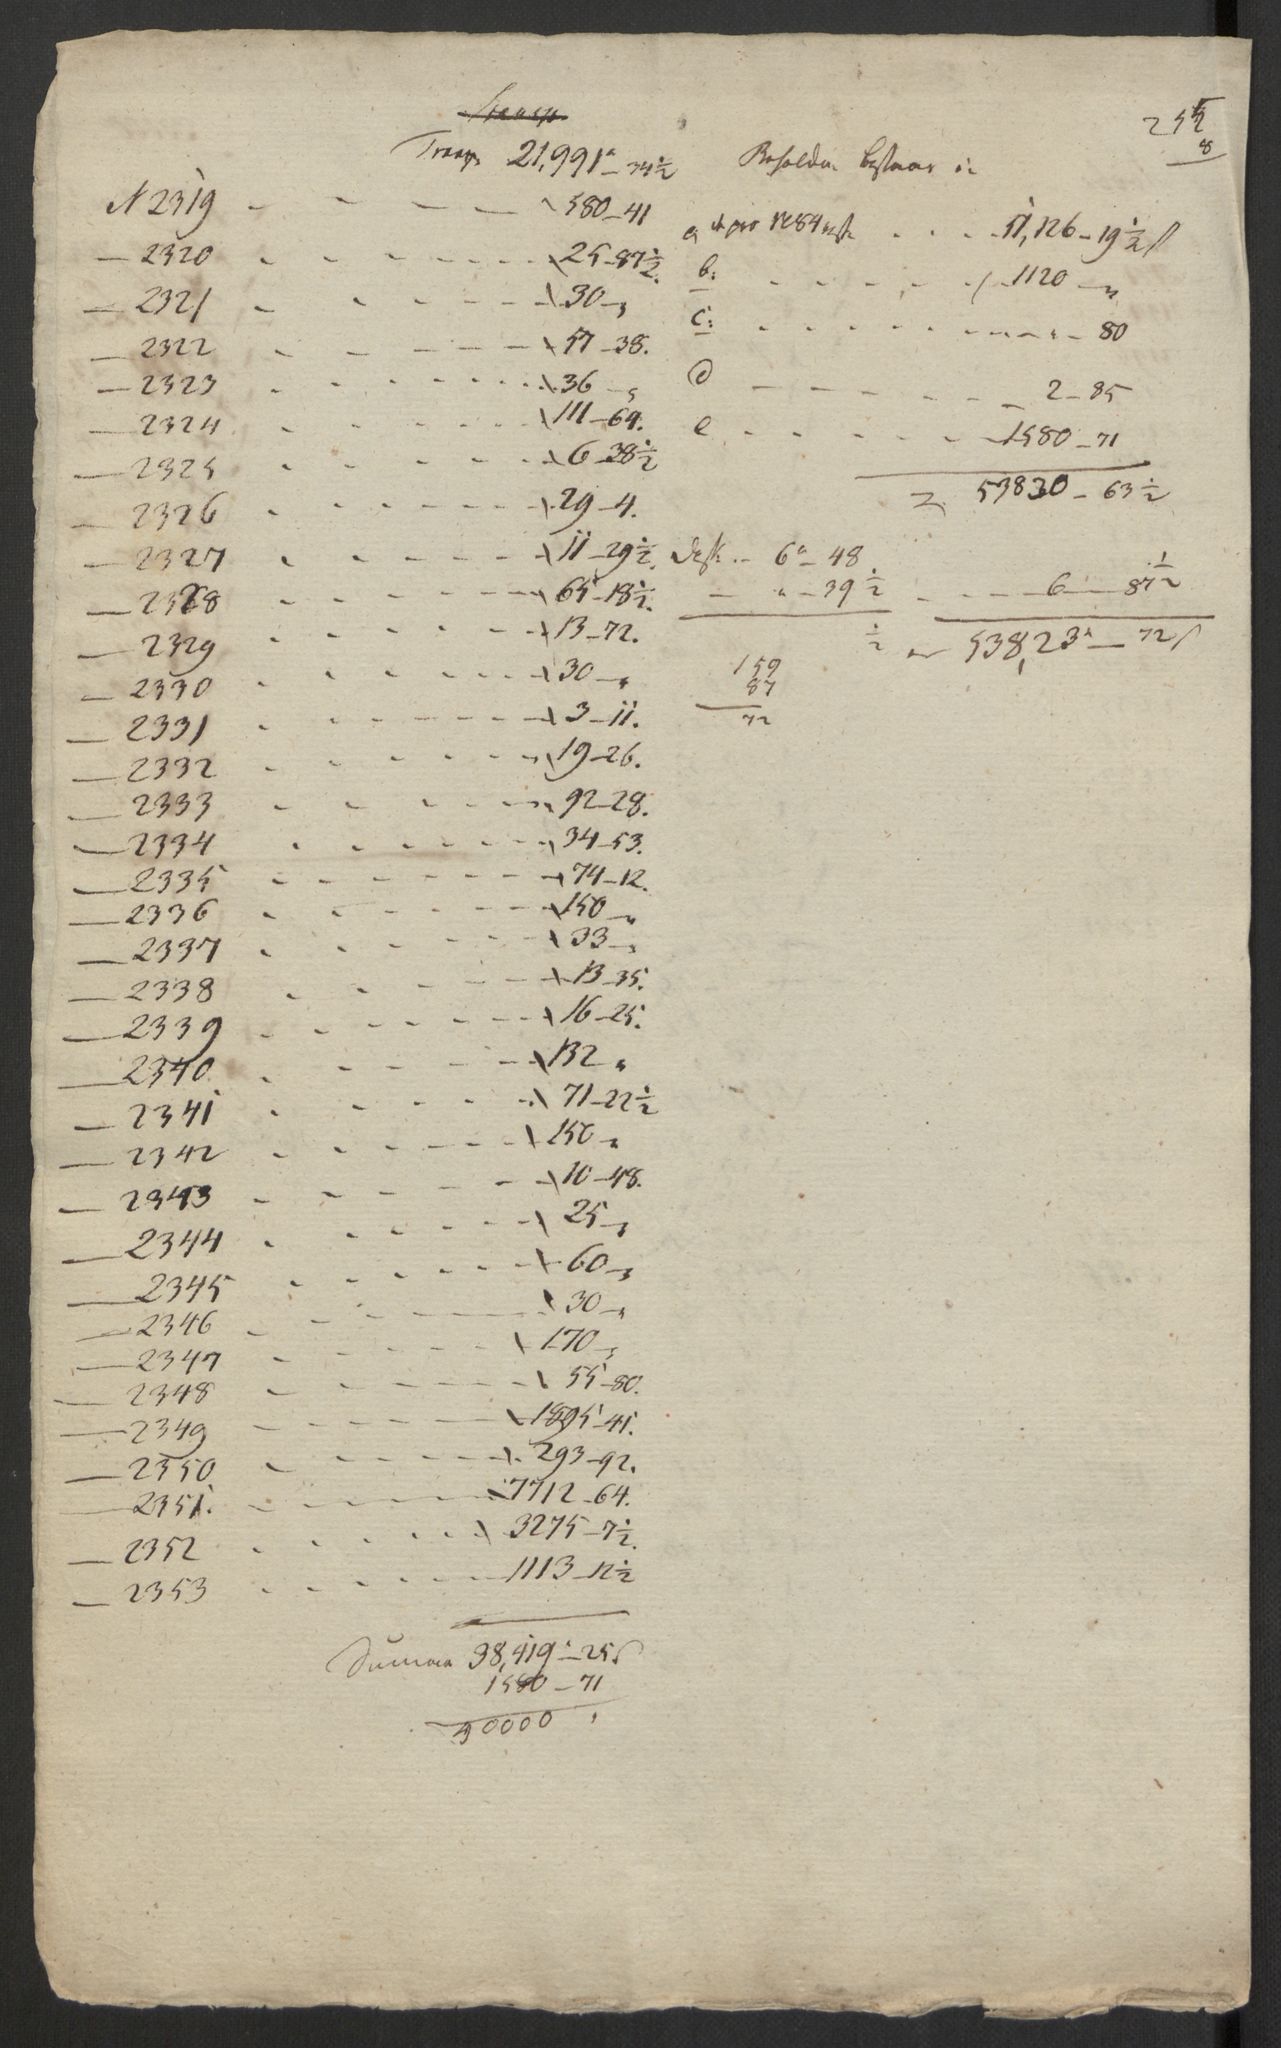 Transp
Transp. 21,991 - 34½
N 2319 - - - - 580 - 41
- 2320 - - - - 25 - 87½.
- 2321 - - - - 30 - "
- 2322 - - - - 57 - 38.
- 2323 - - - - 36 - "
- 2324 - - - - 111 - 64.
- 2325 - - - - 6 - 38½
- 2326 - - - - 29 - 4.
- 2327 - - - - 11 - 29½.
- 2328 - - - - 65 - 18½.
- 2329 - - - - 13 - 72.
- 2330 - - - - 30 - "
- 2331 - - - - 3 - 11.
- 2332 - - - - 19 - 26.
- 2333 - - - - 92 - 28.
- 2334 - - - - 34 - 53.
- 2335 - - - - 74 - 12.
- 2336 - - - - 150 - "
- 2337 - - - - 33 - "
- 2338 - - - - 13 - 35.
- 2339 - - - - 16 - 25.
- 2340 - - - - 132 "
- 2341 - - - - 71 - 22½
- 2342 - - - - 150 - "
- 2343 - - - - 10 - 48.
- 2344 - - - - 25 - "
- 2345 - - - - 60 - "
- 2346 - - - - 30 - "
- 2347 - - - - 170 - "
- 2348 - - - - 55 - 80.
- 2349 - - - - 1895 - 41.
- 2350 - - - - 293 - 92.
- 2351. - - - - 7712 - 64.
- 2352 - - - - 3275 - 7½.
- 2353 - - - - 1113 - 12½
Summa 38,419 - 25
1580 - 71
40000 "
255
8
Beholdn. bestaar i
a - - - 51,126 - 19½
b: - - - 1120 - "
c: - - - 80
d - - - 2 - 85
e - - - 1580 - 71
53830 - 63½
6 - 48
" - 39½ - - - 6 - 87½
½ 538,23 - 72
159
87
72